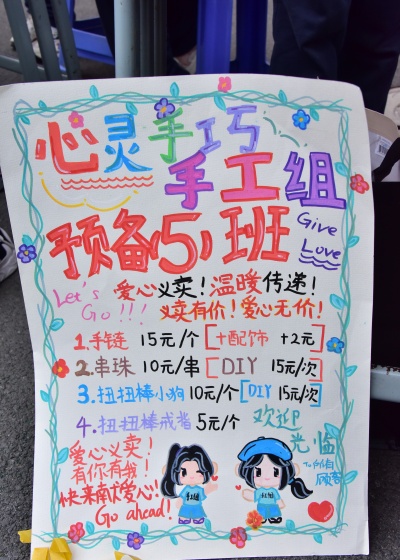 心灵手巧
手工组
预备(5)班
Give
Love
Let's
Go!!!
爱心义卖!温暖传递!
义卖有价!爱心无价!
1.手链 15元/个[+配饰 +2元]
2.串珠 10元/串[DIY 15元/次]
3.扭扭棒小狗 10元/个[DIY 15元/次]
4.扭扭棒戒指 5元/个
欢迎
光临
To所有
顾客
爱心义卖!
有你有我!
快来献爱心!
Go ahead!
手工组